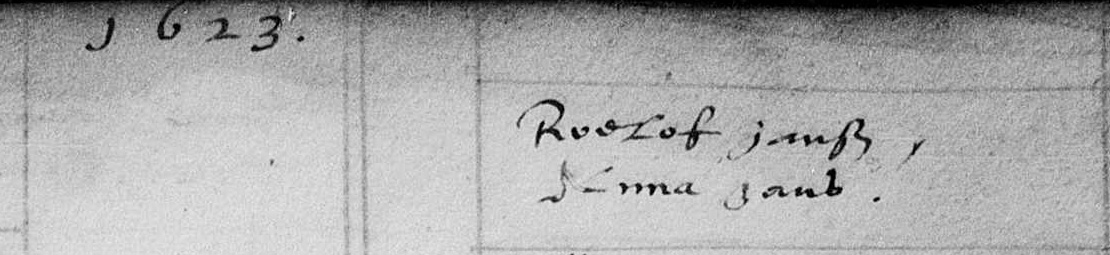 1623.
Roelof jansz,
Anna jans.